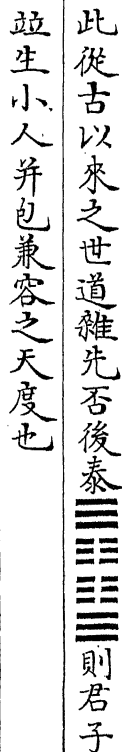 此從古以來之世道雜先否後泰䷋䷊則君子
竝生小人并包兼容之天度也